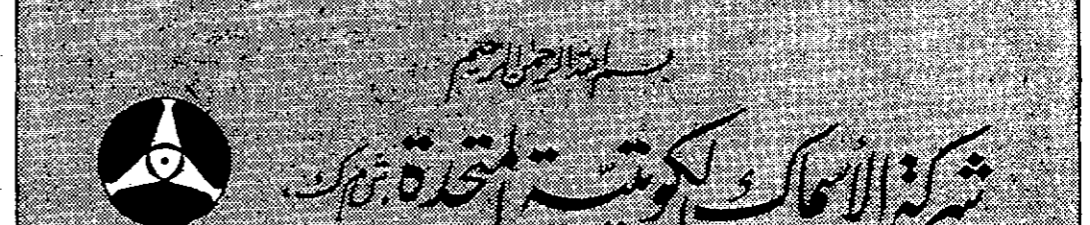 بسم الله الرحمن الرحيم
شركة الأسماك الكويتية المتحدة ش.م.ك.